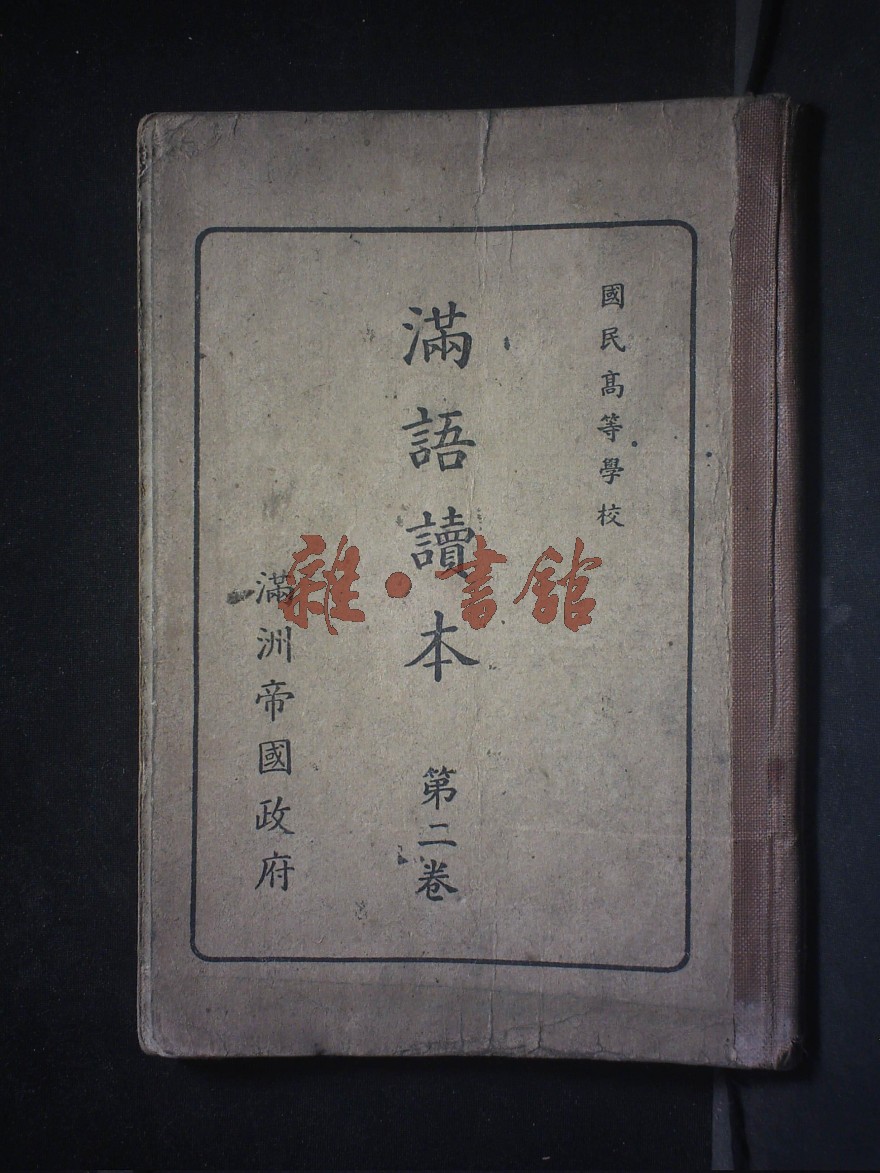 國民高等學校
滿語讀本 第二卷
滿洲帝國政府
雜·書館